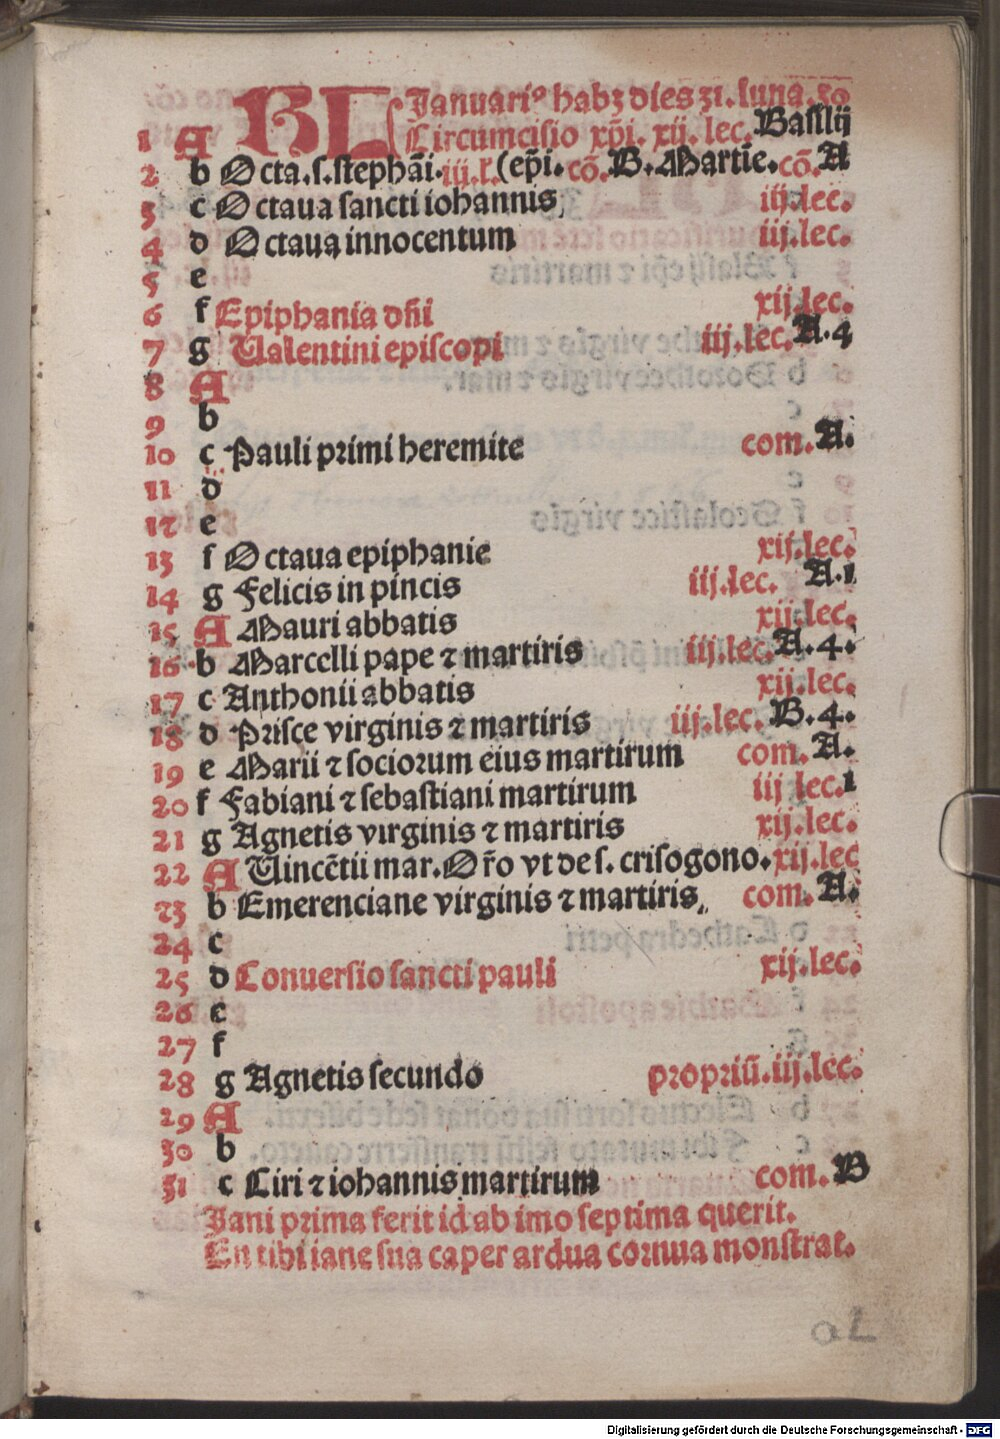 KL Januariꝰ habꝫ dies 31. luna. 30
1 A Circumcisio xp̄i. xij. lec. Basilij
2 b Octa. s. stephāi. iij. l. (ep̄i. cō. B. Martīe. cō. A
3 c Octaua sancti iohannis, iij. lec.
4 d Octaua innocentum iij. lec.
5 e
6 f Epiphania dn̄i xij. lec.
7 g Ualentini episcopi iij. lec. A. 4
8 A
9 b
10 c Pauli primi heremite com. A.
11 d
12 e
13 f Octaua epiphanie xij. lec.
14 g Felicis in pincis iij. lec. A. 1
15 A Mauri abbatis xij. lec.
16 b Marcelli pape ⁊ martiris iij. lec. A. 4.
17 c Anthonii abbatis xij. lec.
18 d Prisce virginis ⁊ martiris iij. lec. B. 4.
19 e Marii ⁊ sociorum eius martirum com. A.
20 f Fabiani ⁊ sebastiani martirum iij lec. 1
21 g Agnetis virginis ⁊ martiris xij. lec.
22 A Uincētii mar. Or̄o vt de s. crisogono. xij. lec
23 b Emerenciane virginis ⁊ martiris, com. A.
24 c
25 d Conuersio sancti pauli xij. lec.
26 e
27 f
28 g Agnetis secundo propriū. iij. lec.
29 A
30 b
31 c Ciri ⁊ iohannis martirum com. B
Jani prima ferit id ab imo septima querit.
En tibi iane sua caper ardua cornua monstrat.
a2
Digitalisierung gefördert durch die Deutsche Forschungsgemeinschaft - DFG